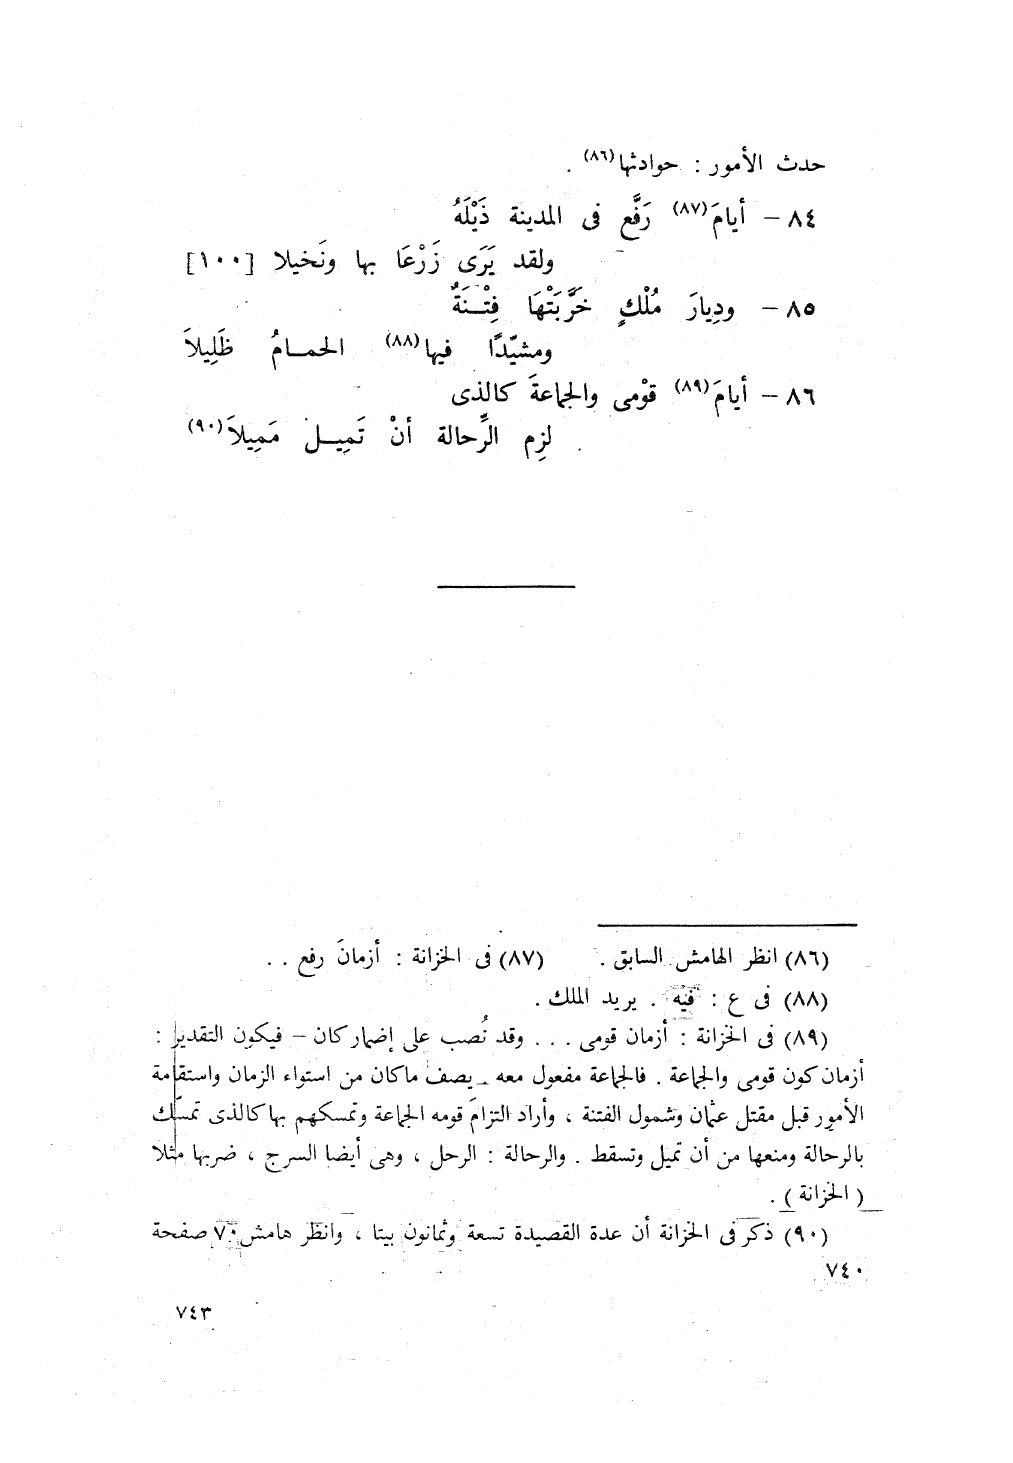 حدث الأمور : حوادثها(٨٦) .
٨٤ – أيامَ(٨٧) رَفَّع فى المدينة ذَيْلَهُ
ولقد يَرَى زَرْعَا بها ونَخيلا [١٠٠]
٨٥ – ودِيارَ مُلْكٍ خَرَّبَتْهَا فِتْنَةٌ
ومشيّدًا فيها(٨٨) الحمامُ ظَلِيلاَ
٨٦ – أيامَ(٨٩) قوْمى والجماعةَ كالذى
لزِم الرِّحالة أنْ تَمِيل مَمِيلاَ(٩٠)
(٨٦) انظر الهامش السابق . (٨٧) فى الخزانة : أزمانَ رفع . .
(٨٨) فى ع : فيه . يريد الملك .
(٨٩) فى الخزانة : أزمان قومى . . . وقد نُصب على إضمار كان – فيكون التقدير :
أزمان كون قومى والجماعة . فالجماعة مفعول معه . يصف ماكان من استواء الزمان واستقامة
الأمور قبل مقتل عثمان وشمول الفتنة ، وأراد التزامَ قومه الجماعة وتمسكهم بها كالذى تمسّك
بالرحالة ومنعها من أن تميل وتسقط . والرحالة : الرحل ، وهى أيضا السرج ، ضربها مثلا
( الخزانة ) .
(٩٠) ذكر فى الخزانة أن عدة القصيدة تسعة وثمانون بيتا ، وانظر هامش ٧٠ صفحة
٧٤٠
٧٤٣